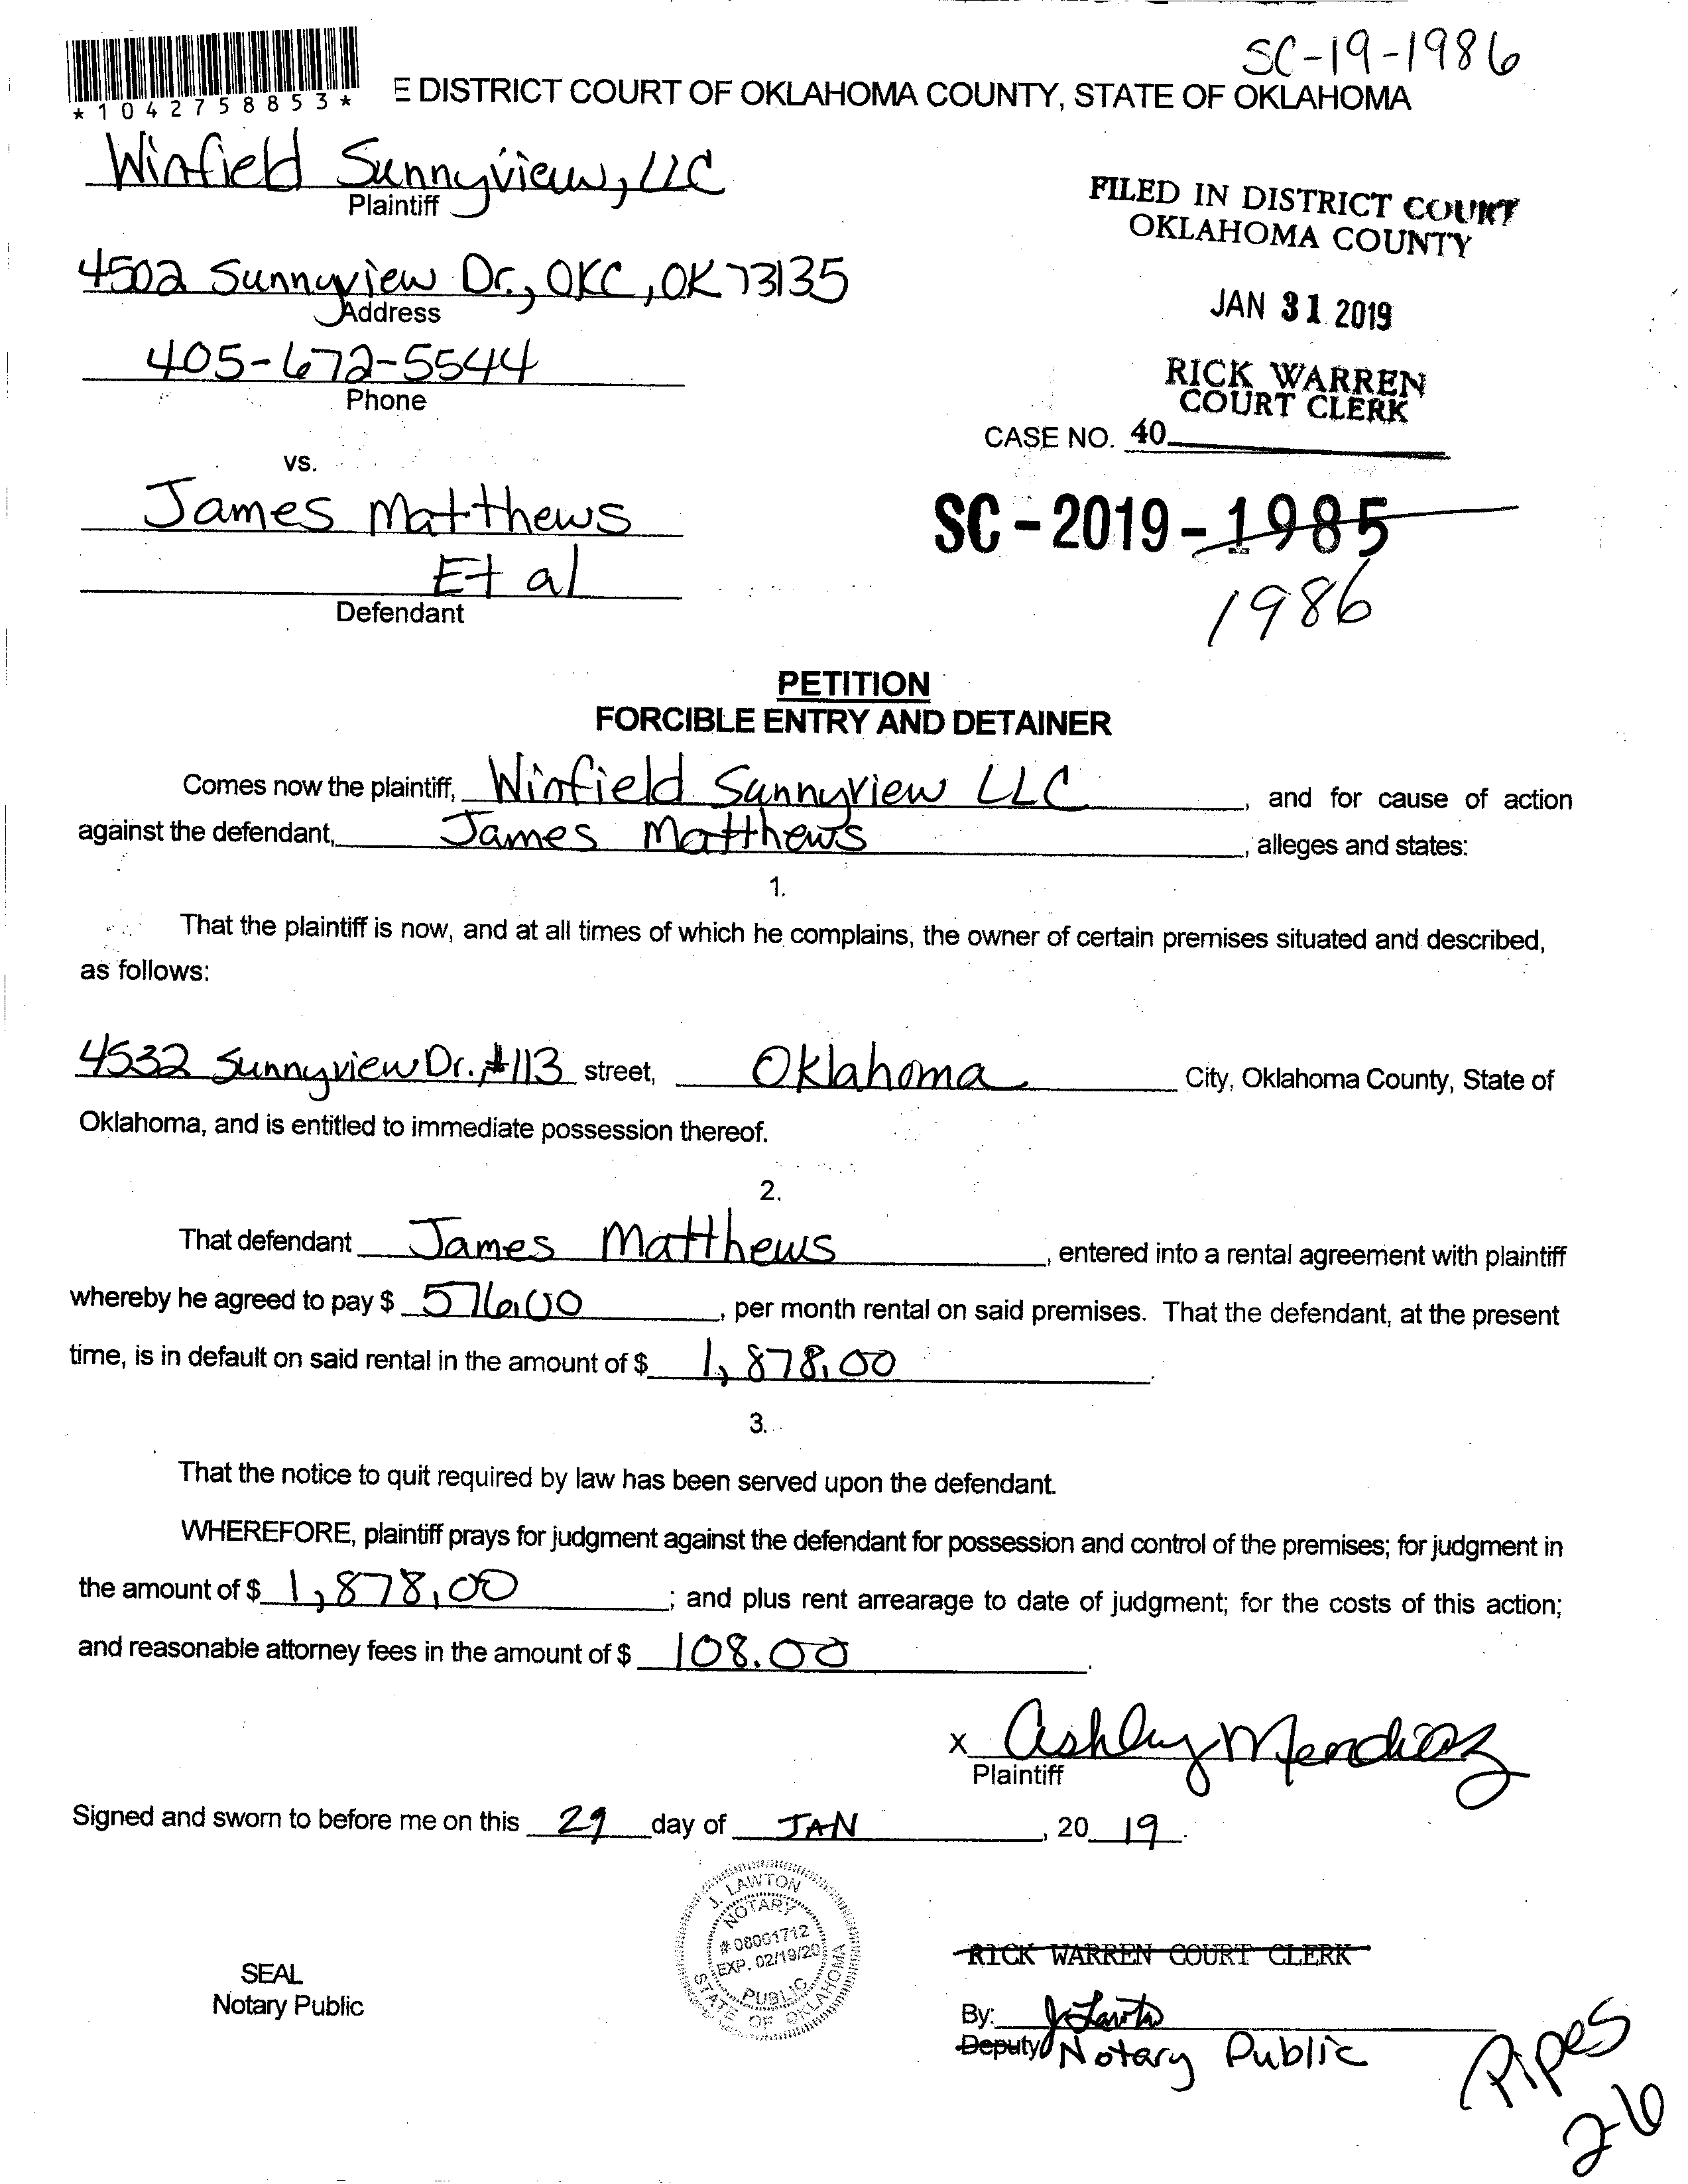 SC-19-1986
*1042758853*
E DISTRICT COURT OF OKLAHOMA COUNTY, STATE OF OKLAHOMA
Winfield Sunnyview, LLC
Plaintiff
FILED IN DISTRICT COURT
OKLAHOMA COUNTY
4502 Sunnyview Dr., OKC, OK 73135
Address
JAN 31 2019
405-672-5544
Phone
RICK WARREN
COURT CLERK
CASE NO. 40
vs.
James Matthews
SC-2019-1985
Et al
Defendant
1986
PETITION
FORCIBLE ENTRY AND DETAINER
Comes now the plaintiff, Winfield Sunnyview LLC, and for cause of action
against the defendant, James Matthews, alleges and states:
1.
That the plaintiff is now, and at all times of which he complains, the owner of certain premises situated and described,
as follows:
4532 Sunnyview Dr. #113 street, Oklahoma City, Oklahoma County, State of
Oklahoma, and is entitled to immediate possession thereof.
2.
That defendant James Matthews, entered into a rental agreement with plaintiff
whereby he agreed to pay $ 576.00, per month rental on said premises. That the defendant, at the present
time, is in default on said rental in the amount of $ 1,878.00.
3.
That the notice to quit required by law has been served upon the defendant.
WHEREFORE, plaintiff prays for judgment against the defendant for possession and control of the premises; for judgment in
the amount of $ 1,878.00; and plus rent arrearage to date of judgment; for the costs of this action;
and reasonable attorney fees in the amount of $ 108.00.
x Ashley
Plaintiff
Signed and sworn to before me on this 29 day of JAN, 2019.
J. LAWTON
NOTARY
# 08001712
EXP. 02/19/20
PUBLIC
STATE OF OKLAHOMA
SEAL
Notary Public
RICK WARREN COURT CLERK
By: J Lawton
Deputy Notary Public
Pipes
2-6